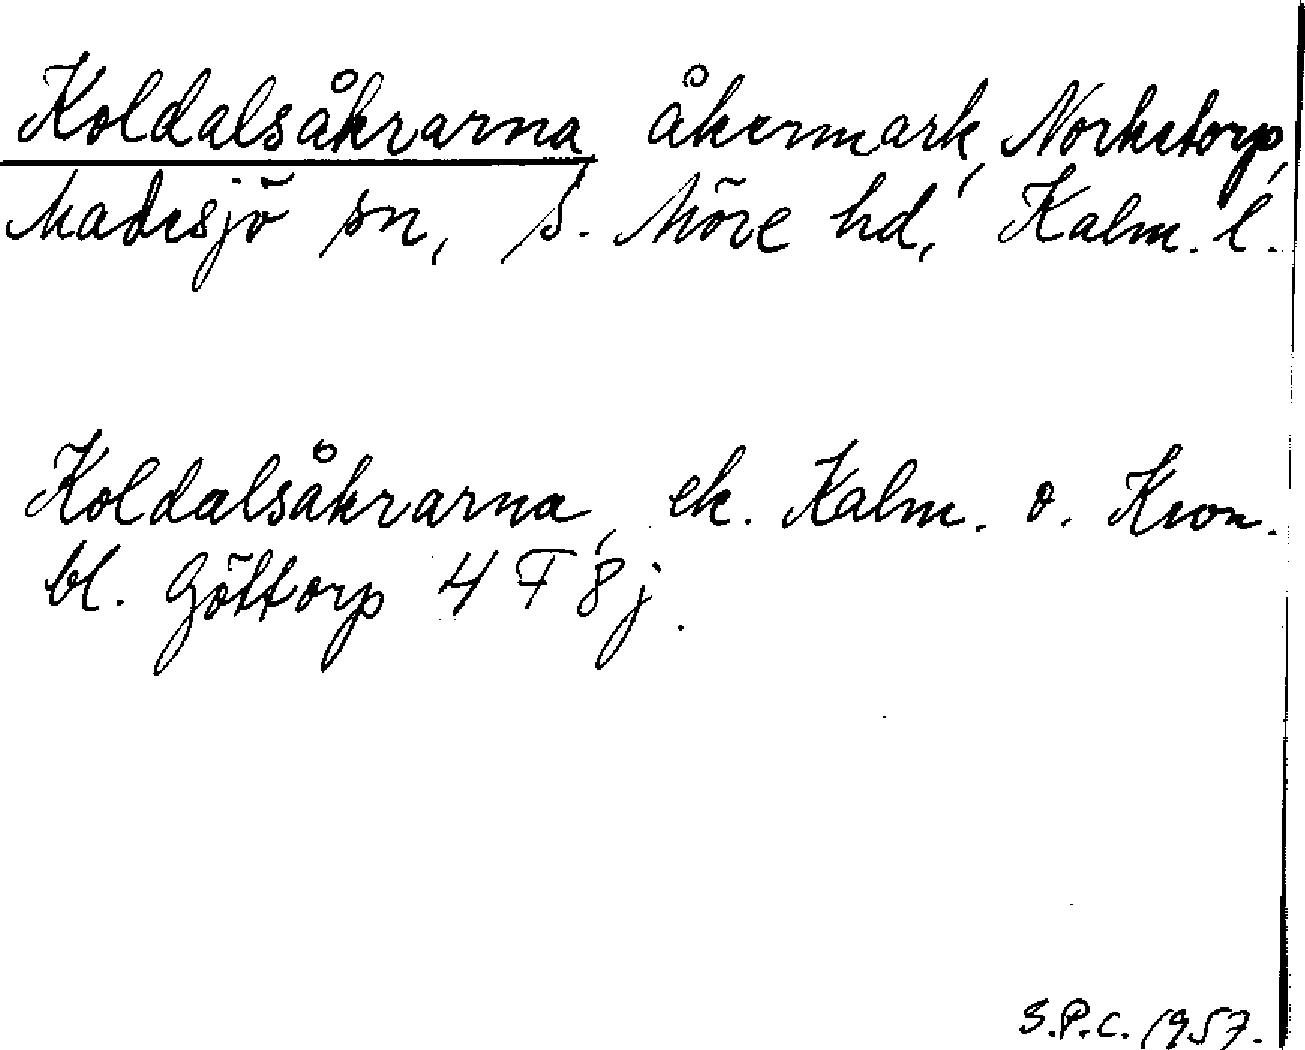 Koldalsåkrarna, åkermark, Norketorp,
Madesjö sn, S. Möre hd, Kalm. l.
Koldalsåkrarna, ek. Kalm. o. Kron.
bl. Göttorp 4 F 8 j.
S.P.C. 1957.